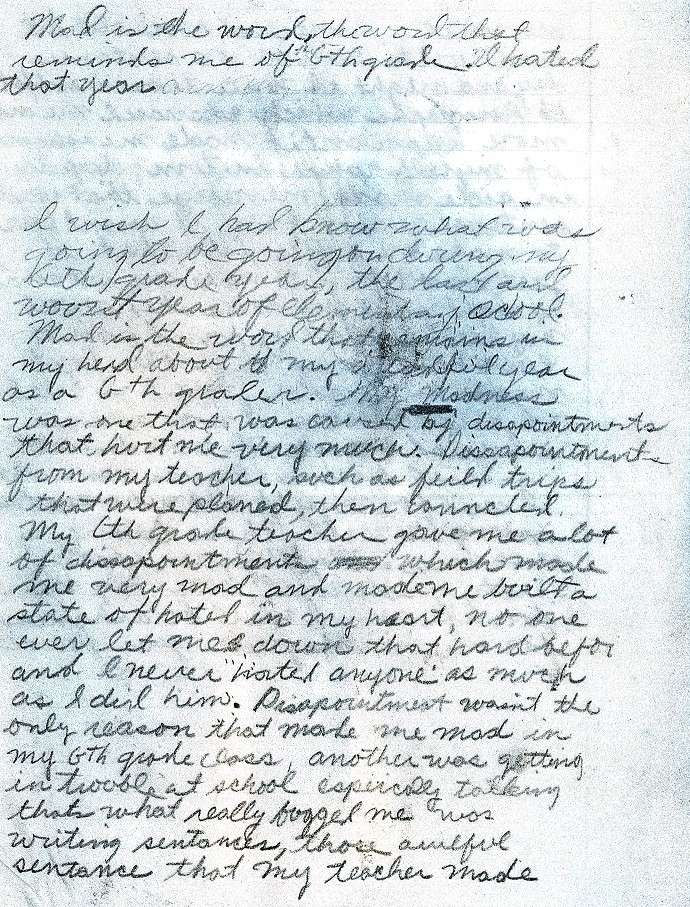 Mad is the word, the word that
reminds me of my 6th grade I hated
that year
I wish I had know what was
going to be going on during my
6th grade year, the last and
woorst year of elementary scool.
Mad is the word that remains in
my head about my dreadful year
as a 6th grader. My madness
was one that was caused by disapointments
that hurt me very much. Dissapointments
from my teacher, such as feild trips
that were planed, then canncled.
My 6th grade teacher gave me a lot
of dissapointments which made
me very mad and made me built a
state of hatel in my heart, no one
ever let me down that hard befor
and I never hated anyone as much
as I did him. Disapointment wasn't the
only reason that made me mad in
my 6th grade class, another was getting
in trouble at school espically talking
thats what really bugged me was
writing sentances, those awlful
sentance that my teacher made